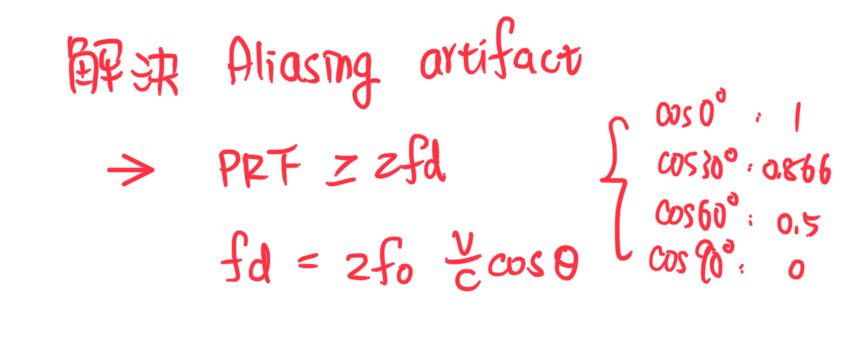 解決 Aliasing artifact
→ PRF ≥ 2fd
fd = 2f₀ v/c cosθ
cos0° : 1
cos30° : 0.866
cos60° : 0.5
cos90° : 0